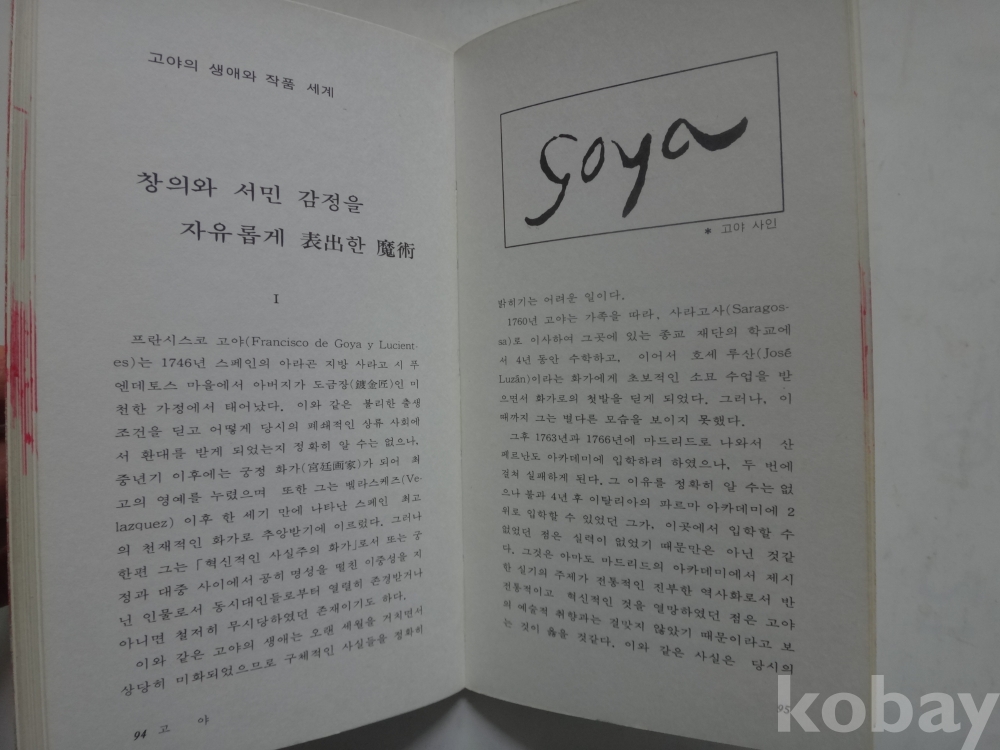 고야의 생애와 작품 세계
창의와 서민 감정을
자유롭게 表出한 魔術
I
프란시스코 고야(Francisco de Goya y Lucient-
es)는 1746년 스페인의 아라곤 지방 사라고 시 푸
엔데토스 마을에서 아버지가 도금장(鍍金匠)인 미
천한 가정에서 태어났다. 이와 같은 불리한 출생
조건을 딛고 어떻게 당시의 폐쇄적인 상류 사회에
서 환대를 받게 되었는지 정확히 알 수는 없으나,
중년기 이후에는 궁정 화가(宮廷画家)가 되어 최
고의 영예를 누렸으며 또한 그는 벨라스케즈(Ve-
lazquez) 이후 한 세기 만에 나타난 스페인 최고
의 천재적인 화가로 추앙받기에 이르렀다. 그러나
한편 그는 「혁신적인 사실주의 화가」로서 또는 궁
정과 대중 사이에서 공히 명성을 떨친 이중성을 지
닌 인물로서 동시대인들로부터 열렬히 존경받거나
아니면 철저히 무시당하였던 존재이기도 하다.
이와 같은 고야의 생애는 오랜 세월을 거치면서
상당히 미화되었으므로 구체적인 사실들을 정확히
94 고 야
Goya
* 고야 사인
밝히기는 어려운 일이다.
1760년 고야는 가족을 따라, 사라고사(Saragos-
sa)로 이사하여 그곳에 있는 종교 재단의 학교에
서 4년 동안 수학하고, 이어서 호세 루산(José
Luzân)이라는 화가에게 초보적인 소묘 수업을 받
으면서 화가로의 첫발을 딛게 되었다. 그러나, 이
때까지 그는 별다른 모습을 보이지 못했다.
그후 1763년과 1766년에 마드리드로 나와서 산
페르난도 아카데미에 입학하려 하였으나, 두 번에
걸쳐 실패하게 된다. 그 이유를 정확히 알 수는 없
으나 불과 4년 후 이탈리아의 파르마 아카데미에 2
위로 입학할 수 있었던 그가, 이곳에서 입학할 수
없었던 점은 실력이 없었기 때문만은 아닌 것같
다. 그것은 아마도 마드리드의 아카데미에서 제시
한 실기의 주제가 전통적인 진부한 역사화로서 반
전통적이고 혁신적인 것을 열망하였던 점은 고야
의 예술적 취향과는 걸맞지 않았기 때문이라고 보
는 것이 옳을 것같다. 이와 같은 사실은 당시의
95
kobay